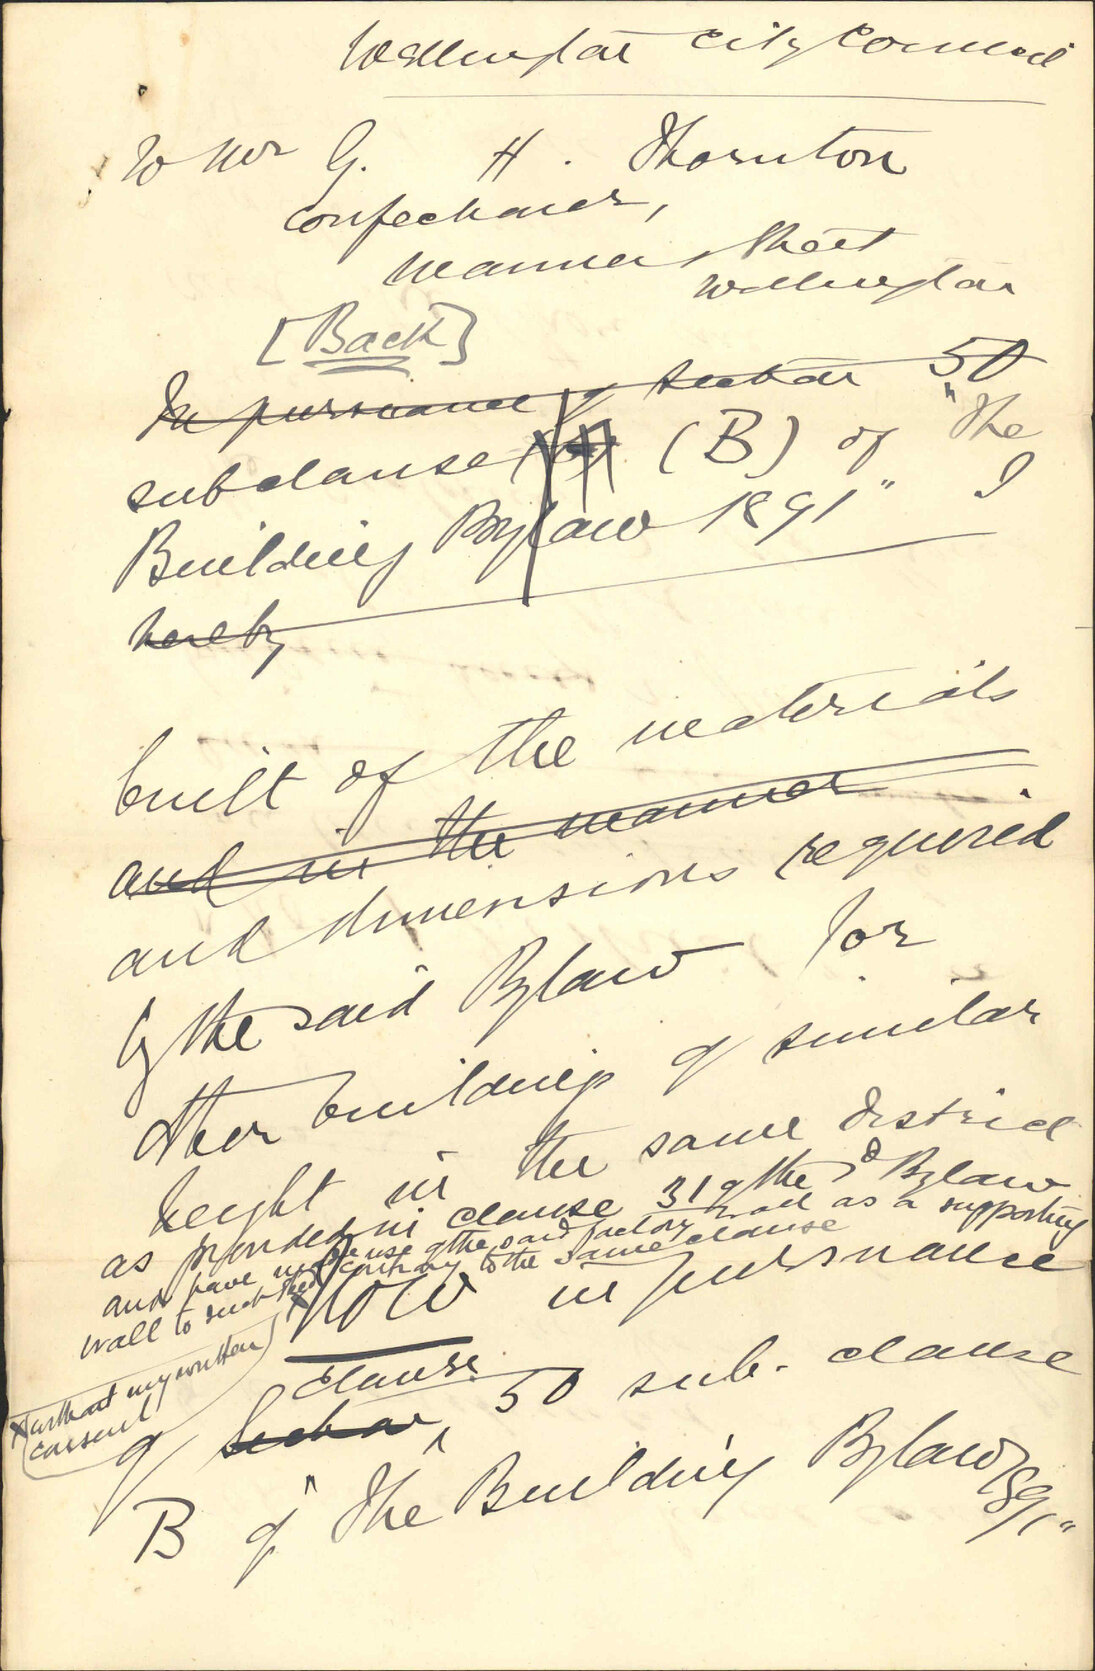 Wellington City Council
To Mr G. H. Thornton
Confectioner,
Manners Street
Wellington
[Back]
In pursuance of section 50
subclause (B) of "The
Building Bylaw 1891" I
hereby
built of the materials
and in the manner
and dimensions required
by the said Bylaw for
other buildings of similar
height in the same district
as provided in clause 31 of the sd Bylaw
and have made use of the said factory wall as a supporting
wall to such shed contrary to the same clause
X without my written
consent
Now in pursuance
clause
of Section 50 sub-clause
B of "The Building Bylaw 1891"